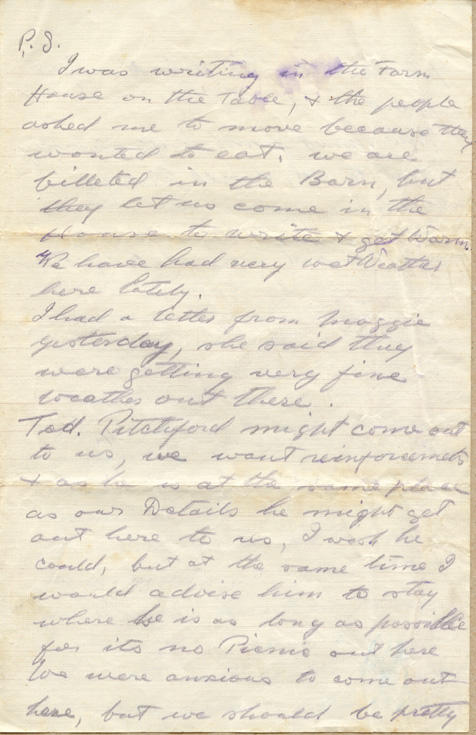 P.S.
I was writing in the Farm
House on the Table, & the people
asked me to move because they
wanted to eat. we are
billeted in the Barn, but
they let us come in the
House to write & get Warm.
We have had very wet Weather
here lately.
I had a letter from Maggie
yesterday, she said they
were getting very fine
weather out there.
Ted. Pitchford might come out
to us, we want reinforcements
& as he is at the same place
as our Details he might get
out here to us, I wish he
could, but at the same time I
would advise him to stay
where he is as long as possible
for its no Picnic out here
We were anxious to come out
here, but we should be pretty